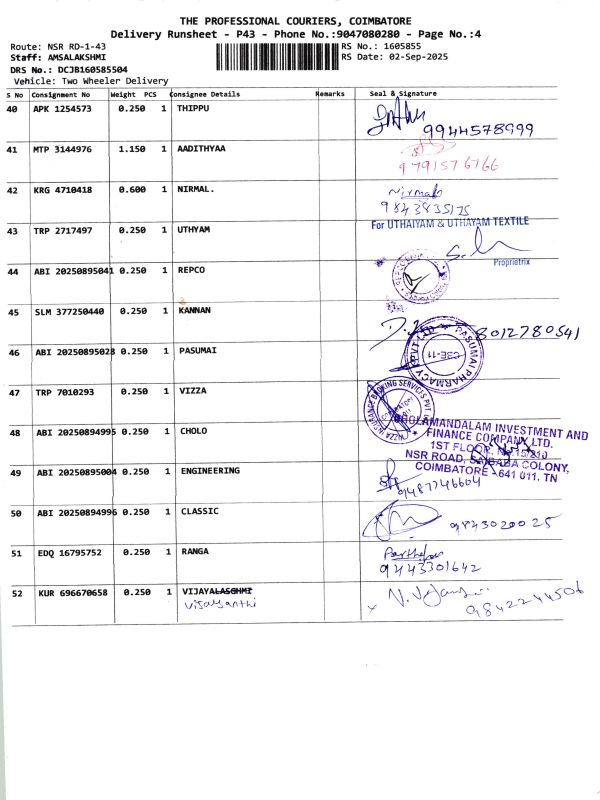 THE PROFESSIONAL COURIERS, COIMBATORE
Delivery Runsheet - P43 - Phone No.:9047080280 - Page No.:4
Route: NSR RD-1-43 RS No.: 1605855
Staff: AMSALAKSHMI RS Date: 02-Sep-2025
DRS No.: DCJB160585504
Vehicle: Two Wheeler Delivery
S No Consignment No Weight PCS Consignee Details Remarks Seal & Signature
40 APK 1254573 0.250 1 THIPPU
9944578999
41 MTP 3144976 1.150 1 AADITHYAA
9791576766
42 KRG 4710418 0.600 1 NIRMAL. Nirmal
9843835175
For UTHAIYAM & UTHAYAM TEXTILE
43 TRP 2717497 0.250 1 UTHYAM
Proprietrix
44 ABI 20250895041 0.250 1 REPCO
45 SLM 377250440 0.250 1 KANNAN
8012780541
46 ABI 20250895028 0.250 1 PASUMAI
PASUMAI PHARMACY PVT LTD
CBE-11
47 TRP 7010293 0.250 1 VIZZA
VIZZA INSURANCE BROKING SERVICES PVT.
48 ABI 20250894995 0.250 1 CHOLO
CHOLAMANDALAM INVESTMENT AND
FINANCE COMPANY LTD.
1ST FLOOR,
NSR ROAD, SAIBABA COLONY,
COIMBATORE - 641 011. TN
49 ABI 20250895004 0.250 1 ENGINEERING
9487746604
50 ABI 20250894996 0.250 1 CLASSIC
9843020025
51 EDQ 16795752 0.250 1 RANGA
9443301642
52 KUR 696670658 0.250 1 VIJAYALASGHMI
Vijayanthi
9842244506